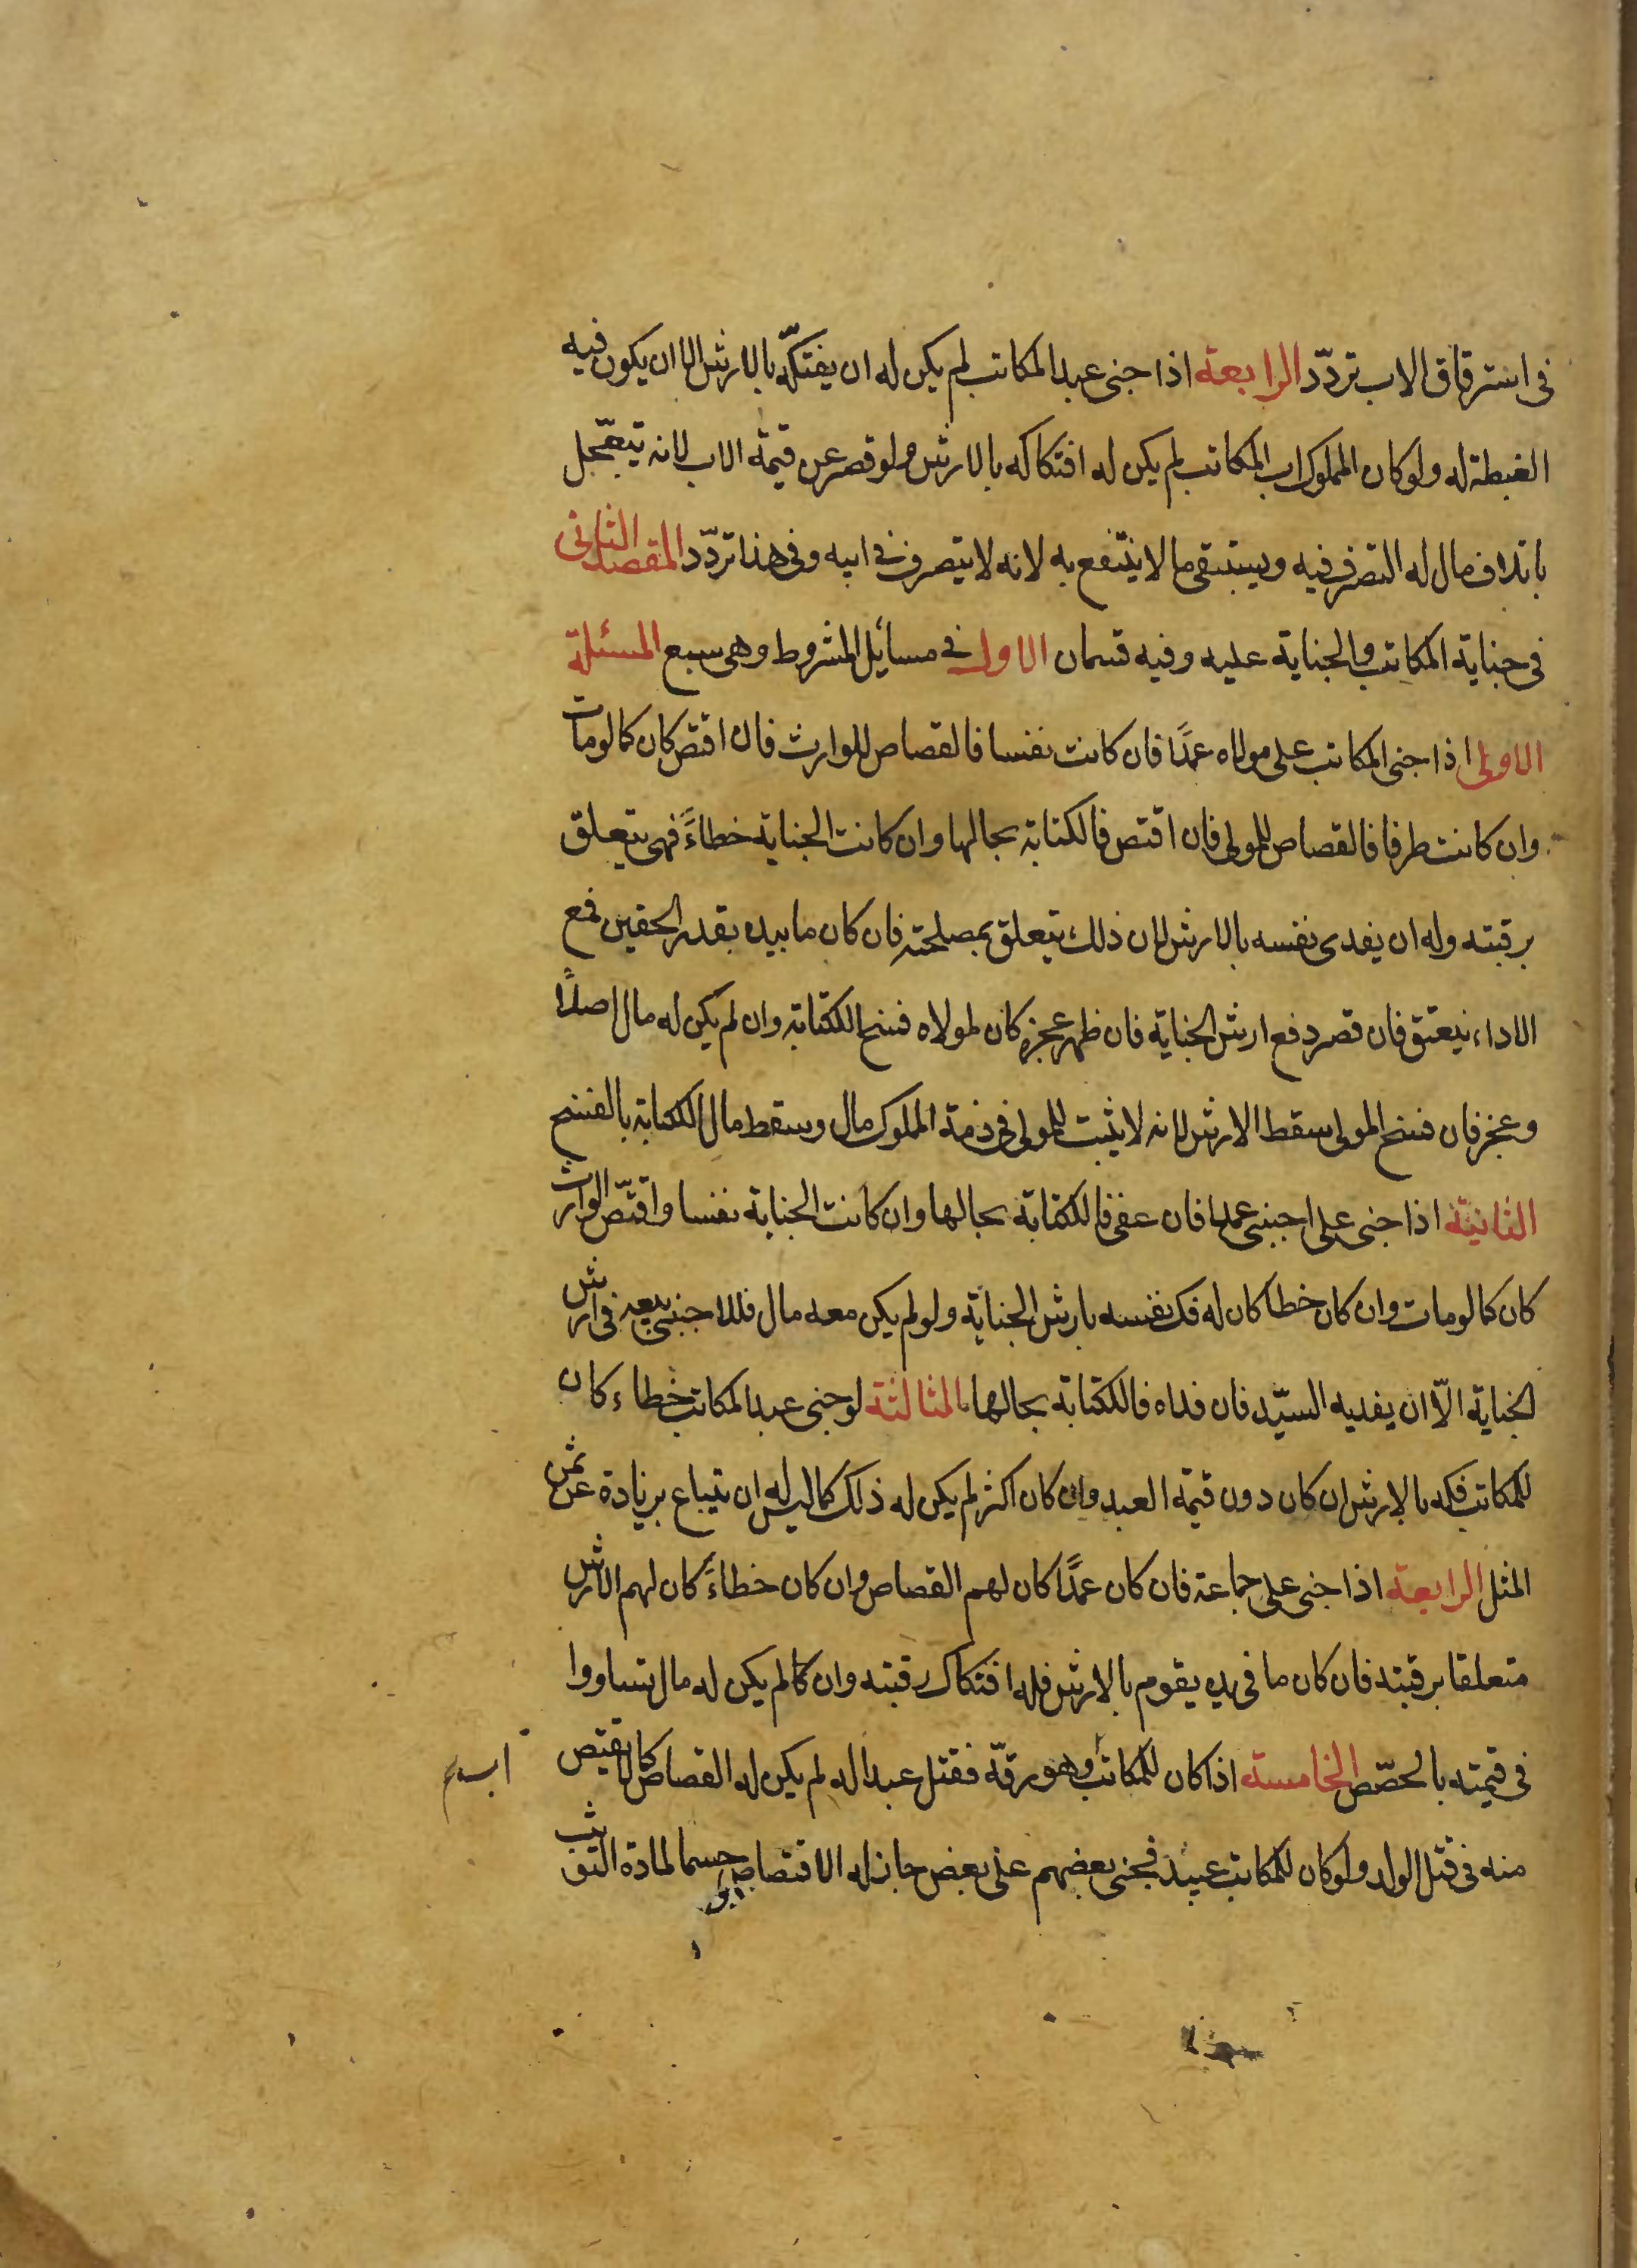 فى استرقاق الاب تردّد الرابعة اذا جنى عبد المكاتب لم يكن له ان يفتكّه بالارش الا ان يكون فيه
الغبطة له ولو كان المملوك اب المكاتب لم يكن له افتكاكه بالارش ولو قصر عن قيمة الاب لانه يتعجّل
باتلاف مال له التصرف فيه ويستبقى ما لا ينتفع به لانه لا يتصرف فى ابيه وفى هذا تردّد المقصد الثانى
فى جناية المكاتب والجناية عليه وفيه قسمان الاول فى مسائل المشروط وهى سبع المسئلة
الاولى اذا جنى المكاتب على مولاه عمدًا فان كانت نفسا فالقصاص للوارث فان اقتص كان كما لو مات
وان كانت طرفا فالقصاص للمولى فان اقتص فالكتابة بحالها وان كانت الجناية خطاءً فهى يتعلق
برقبته وله ان يفدى نفسه بالارش لان ذلك يتعلق بمصلحته فان كان ما بيده بقدر الحقين فمع
الاداء ينعتق فان قصر دفع ارش الجناية فان ظهر عجزه كان لمولاه فسخ الكتابة وان لم يكن له مال اصلًا
وعجز فان فسخ المولى سقط الارش لانه لا يثبت للمولى فى ذمة المملوك مال وسقط مال الكتابة بالفسخ
الثانية اذا جنى على اجنبى عمدا فان عفى فالكتابة بحالها وان كانت الجناية نفسا واقتصّ الوارث
كان كما لو مات وان كان خطا كان له فك نفسه بارش الجناية ولو لم يكن معه مال فللاجنبى بيعه فى ارش
الجناية الّا ان يفديه السيّد فان فداه فالكتابة بحالها الثالثة لو جنى عبد المكاتب خطاء كان
للمكاتب فكه بالارش ان كان دون قيمة العبد وان كان اكثر لم يكن له ذلك كما ليس له ان يتباع بزيادة عن ثمن
المثل الرابعة اذا جنى على جماعة فان كان عمدًا كان لهم القصاص وان كان خطاءً كان لهم الارش
متعلقا برقبته فان كان ما فى يده يقوم بالارش فله افتكاك رقبته وان كالم يكن له مال تساووا
فى قيمته بالحصّص الخامسة اذا كان للمكاتب وهو رقّه فقتل عبدا له لم يكن له القصاص كما لا يقتص
منه فى قتل الولد ولو كان للمكاتب عبيد فجنى بعضهم على بعض جاز له الاقتصاص حسما لمادة التوثب